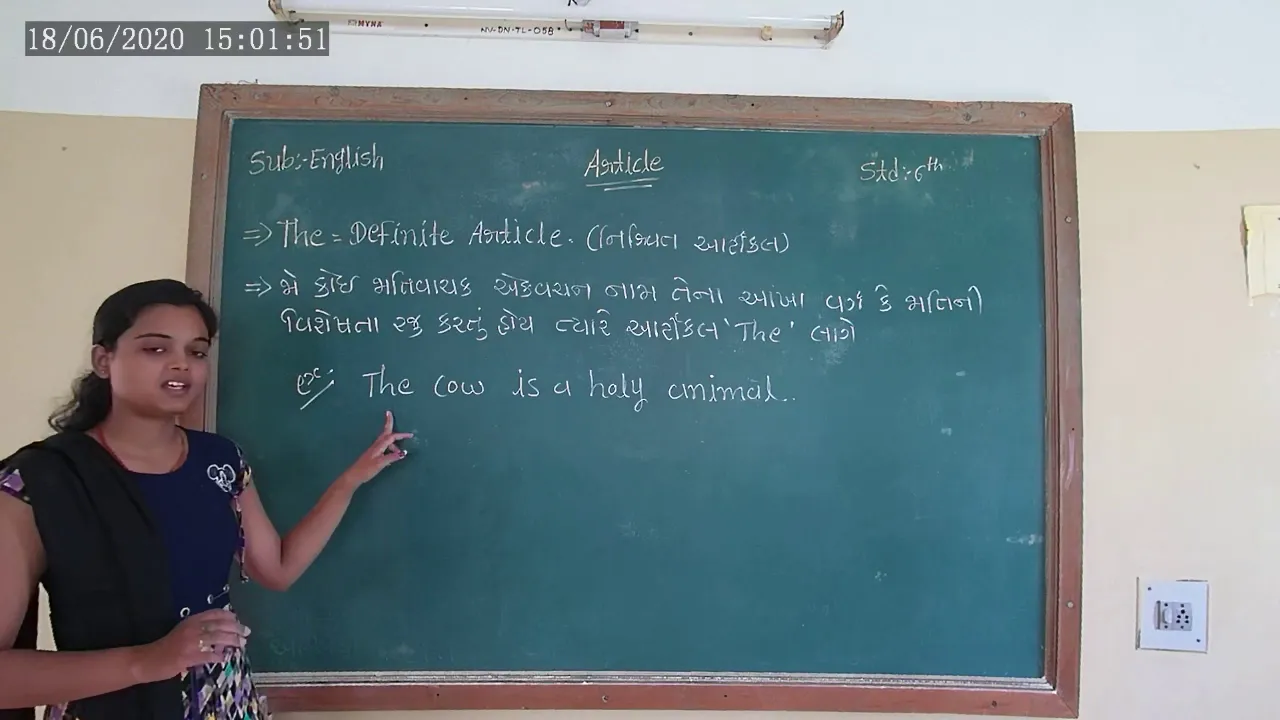 18/06/2020 15:01:51
MYNA NV-DN-TL-058
Sub:-English Article Std:-6th
⇒ The = Definite Article. (નિશ્ચિત આર્ટીકલ)
⇒ જો કોઈ જાતિવાચક એકવચન નામ તેના આખા વર્ગ કે જાતિની
વિશેષતા રજુ કરતું હોય ત્યારે આર્ટીકલ 'The' લાગે
ex:- The cow is a holy animal..